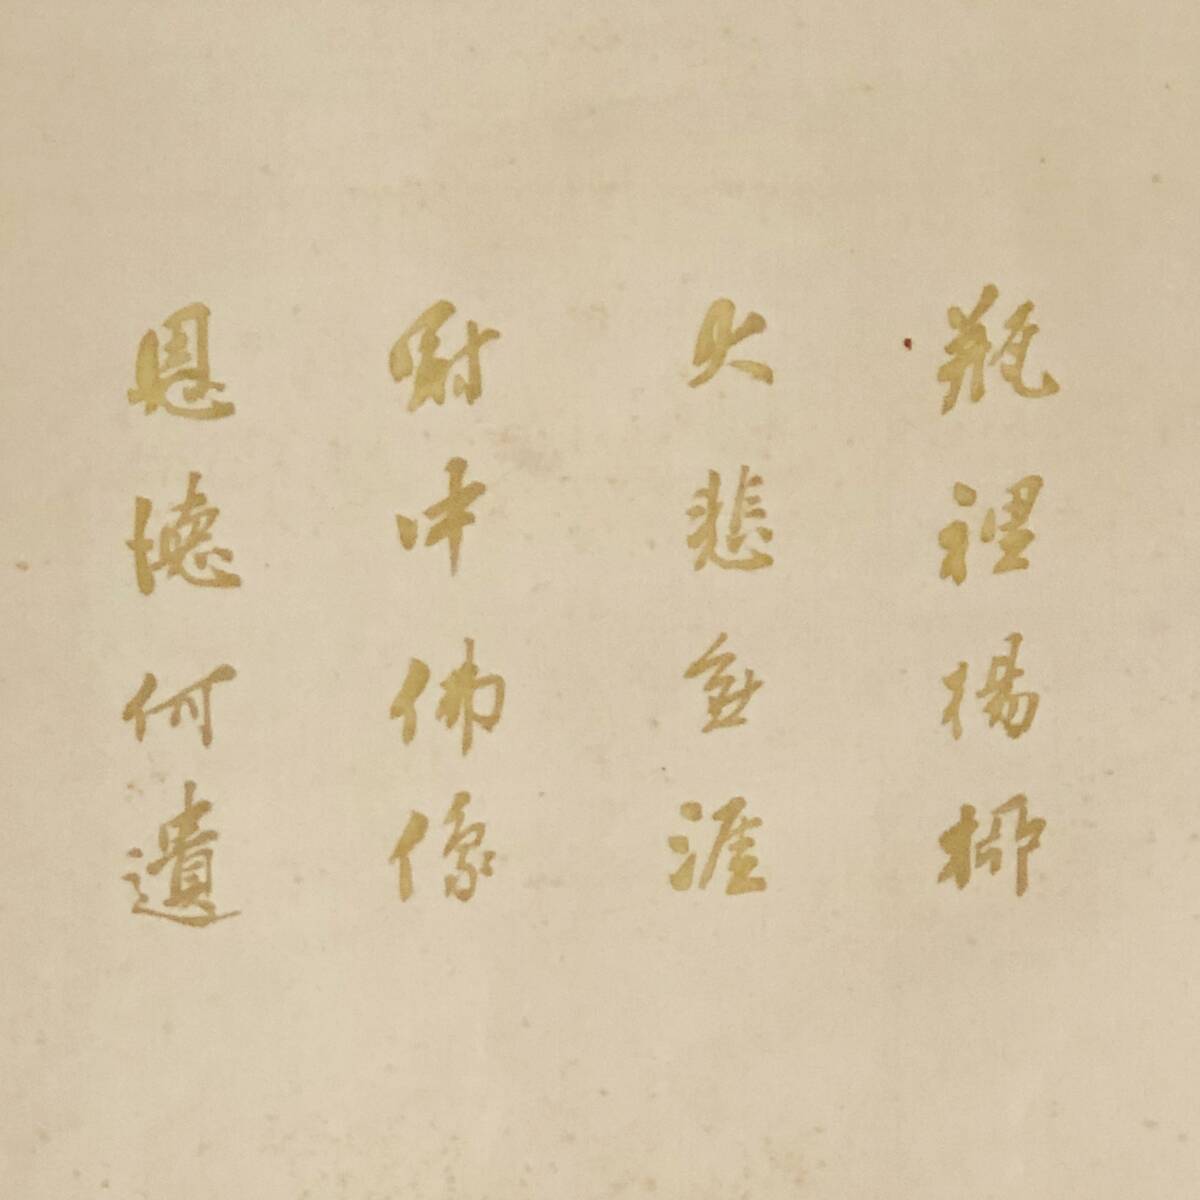 瓶裡楊柳
大悲無涯
厨中佛像
恩德何遺